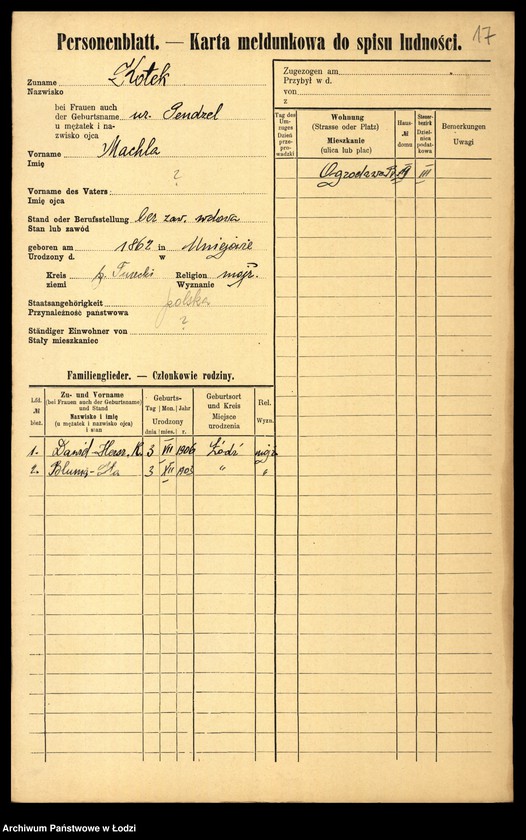 Personenblatt. — Karta meldunkowa do spisu ludności.
17
Zuname Kotek
Nazwisko
bei Frauen auch
der Geburtsname ur. Pendzel
u mężatek i na-
zwisko ojca
Vorname Machla
Imię
?
Vorname des Vaters
Imię ojca
Stand oder Berufsstellung bez zaw. wdowa
Stan lub zawód
geboren am 1862 in
Urodzony d. w
Kreis p. Turecki Religion mojż.
ziemi Wyznanie
Staatsangehörigkeit polska
Przynależność państwowa
?
Ständiger Einwohner von
Stały mieszkaniec
Zugezogen am
Przybył w d.
von
z
Tag des Um-zuges
Dzień prze-prowadzki
Wohnung
(Strasse oder Platz)
Mieszkanie
(ulica lub plac)
Haus-
№
domu
Steuer-bezirk
Dziel-nica podat-kowa
Bemerkungen
Uwagi
Ogrodowa III
Familienglieder. — Członkowie rodziny.
Lfd.
№
bież.
Zu- und Vorname
(bei Frauen auch der Geburtsname)
und Stand
Nazwisko i imię
(u mężatek i nazwisko ojca)
i stan
Geburts-
Tag Mon. Jahr
Urodzony
dnia mies. r.
Geburtsort
und Kreis
Miejsce
urodzenia
Rel.
Wyzn.
1. Dawid-Hersz K. 3 VII 1906 Łódź mojż.
2. Bluma 3 VII " "
Archiwum Państwowe w Łodzi